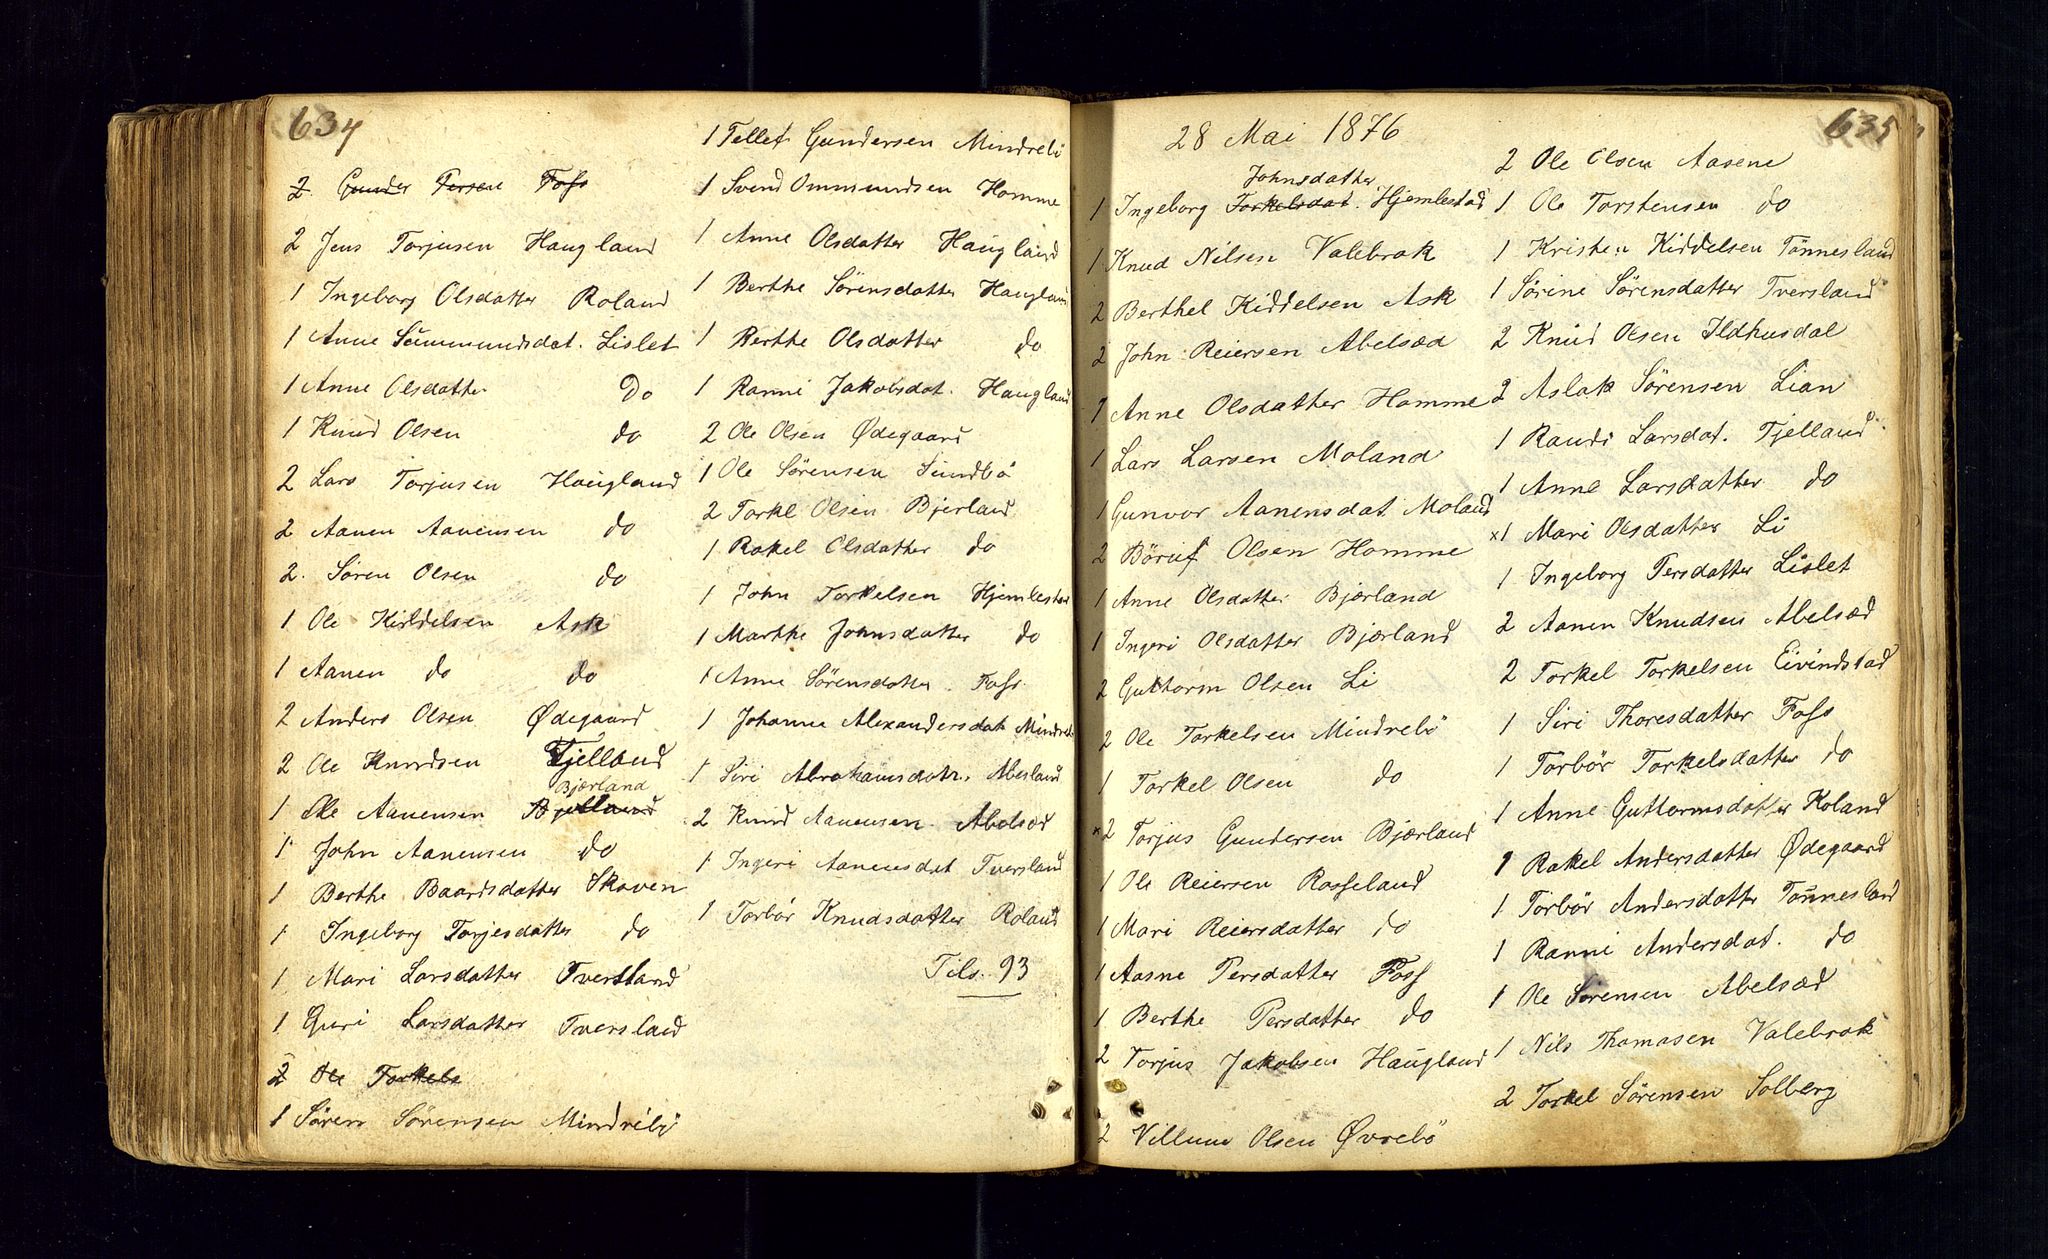 634
2 Gunder Persen Foss
2 Jens Torjusen Haugland
1 Ingeborg Olsdatter Roland
1 Anne Sammundsdat. Lislet
1 Anne Olsdatter Do
1 Knud Olsen do
2 Lars Torjusen Haugland
2 Aanen Aanensen do
2. Sören Olsen do
1 Ole Kiddelsen Ask
1 Aanen do do
2 Anders Olsen Ødegaard
2 Ole Knudsen Fjelland
Bjærland
1 Ole Aanensen Bjelland
1 John Aanensen do
1 Berthe Baardsdatter Skoven
1 Ingeborg Torjesdatter do
1 Mari Larsdatter Tversland
1 Guri Larsdatter Tversland
2 Ole Torkels
1 Sören Sörensen Mindrebö
1 Tellef Gundersen Mindrebö
1 Svend Ommundsen Homme
1 Anne Olsdatter Haugland
1 Berthe Sörensdatter Haugland
1 Berthe Olsdatter do
1 Ranni Jakobsdat. Haugland
2 Ole Olsen Ødegaard
1 Ole Sörensen Sundbö
2 Torkel Olsen Bjerland
1 Rakel Olsdatter do
1 John Torkelsen Hjemlestad
1 Marthe Johnsdatter do
1 Anne Sörensdatter Foss
1 Johanne Alexandersdat Mindreb
1 Siri Abrahamsdatr. Abesland
2 Knud Aanensen Abelsæd
1 Ingeri Aanensdat Tversland
1 Torbör Knudsdatter Roland
Tils. 93
28 Mai 1876
635
Johnsdatter
1 Ingeborg Torkelsdat. Hjemlestad
1 Knud Nilsen Valebrok
2 Berthel Kiddelsen Ask
2 John Reiersen Abelsæd
1 Anne Olsdatter Homme
1 Lars Larsen Moland
1 Gunvor Aanensdat Moland
2 Böruf Olsen Homme
1 Anne Olsdatter Bjærland
1 Ingeri Olsdatter Bjærland
2 Guttorm Olsen Li
2 Ole Torkelsen Mindrebö
1 Torkel Olsen do
×2 Torjus Gundersen Bjærland
1 Ole Reiersen Rosseland
1 Mari Reiersdatter do
1 Aasne Persdatter Foss
1 Berthe Persdatter do
2 Torjus Jakobsen Haugland
2 Villum Olsen Øvrebö
2 Ole Olsen Aasene
1 Ole Torstensen do
1 Kristen Kiddelsen Tönnesland
1 Sörine Sörensdatter Tversland
2 Knud Olsen Ildhusdal
2 Aslak Sörensen Lian
1 Randi Larsdat. Fjelland
1 Anne Larsdatter do
×1 Mari Olsdatter Li
1 Ingeborg Persdatter Lislet
2 Aanen Knudsen Abelsæd
2 Torkel Torkelsen Eivindstad
1 Siri Thoresdatter Foss
1 Torbör Torkelsdatter do
1 Anne Guttormsdatter Roland
1 Rakel Andersdatter Ødegaard
1 Torbör Andersdatter Tönnesland
1 Ranni Andersdat. do
1 Ole Sörensen Abelsæd
1 Nils Thomasen Valebrok
2 Torkel Sörensen Solberg